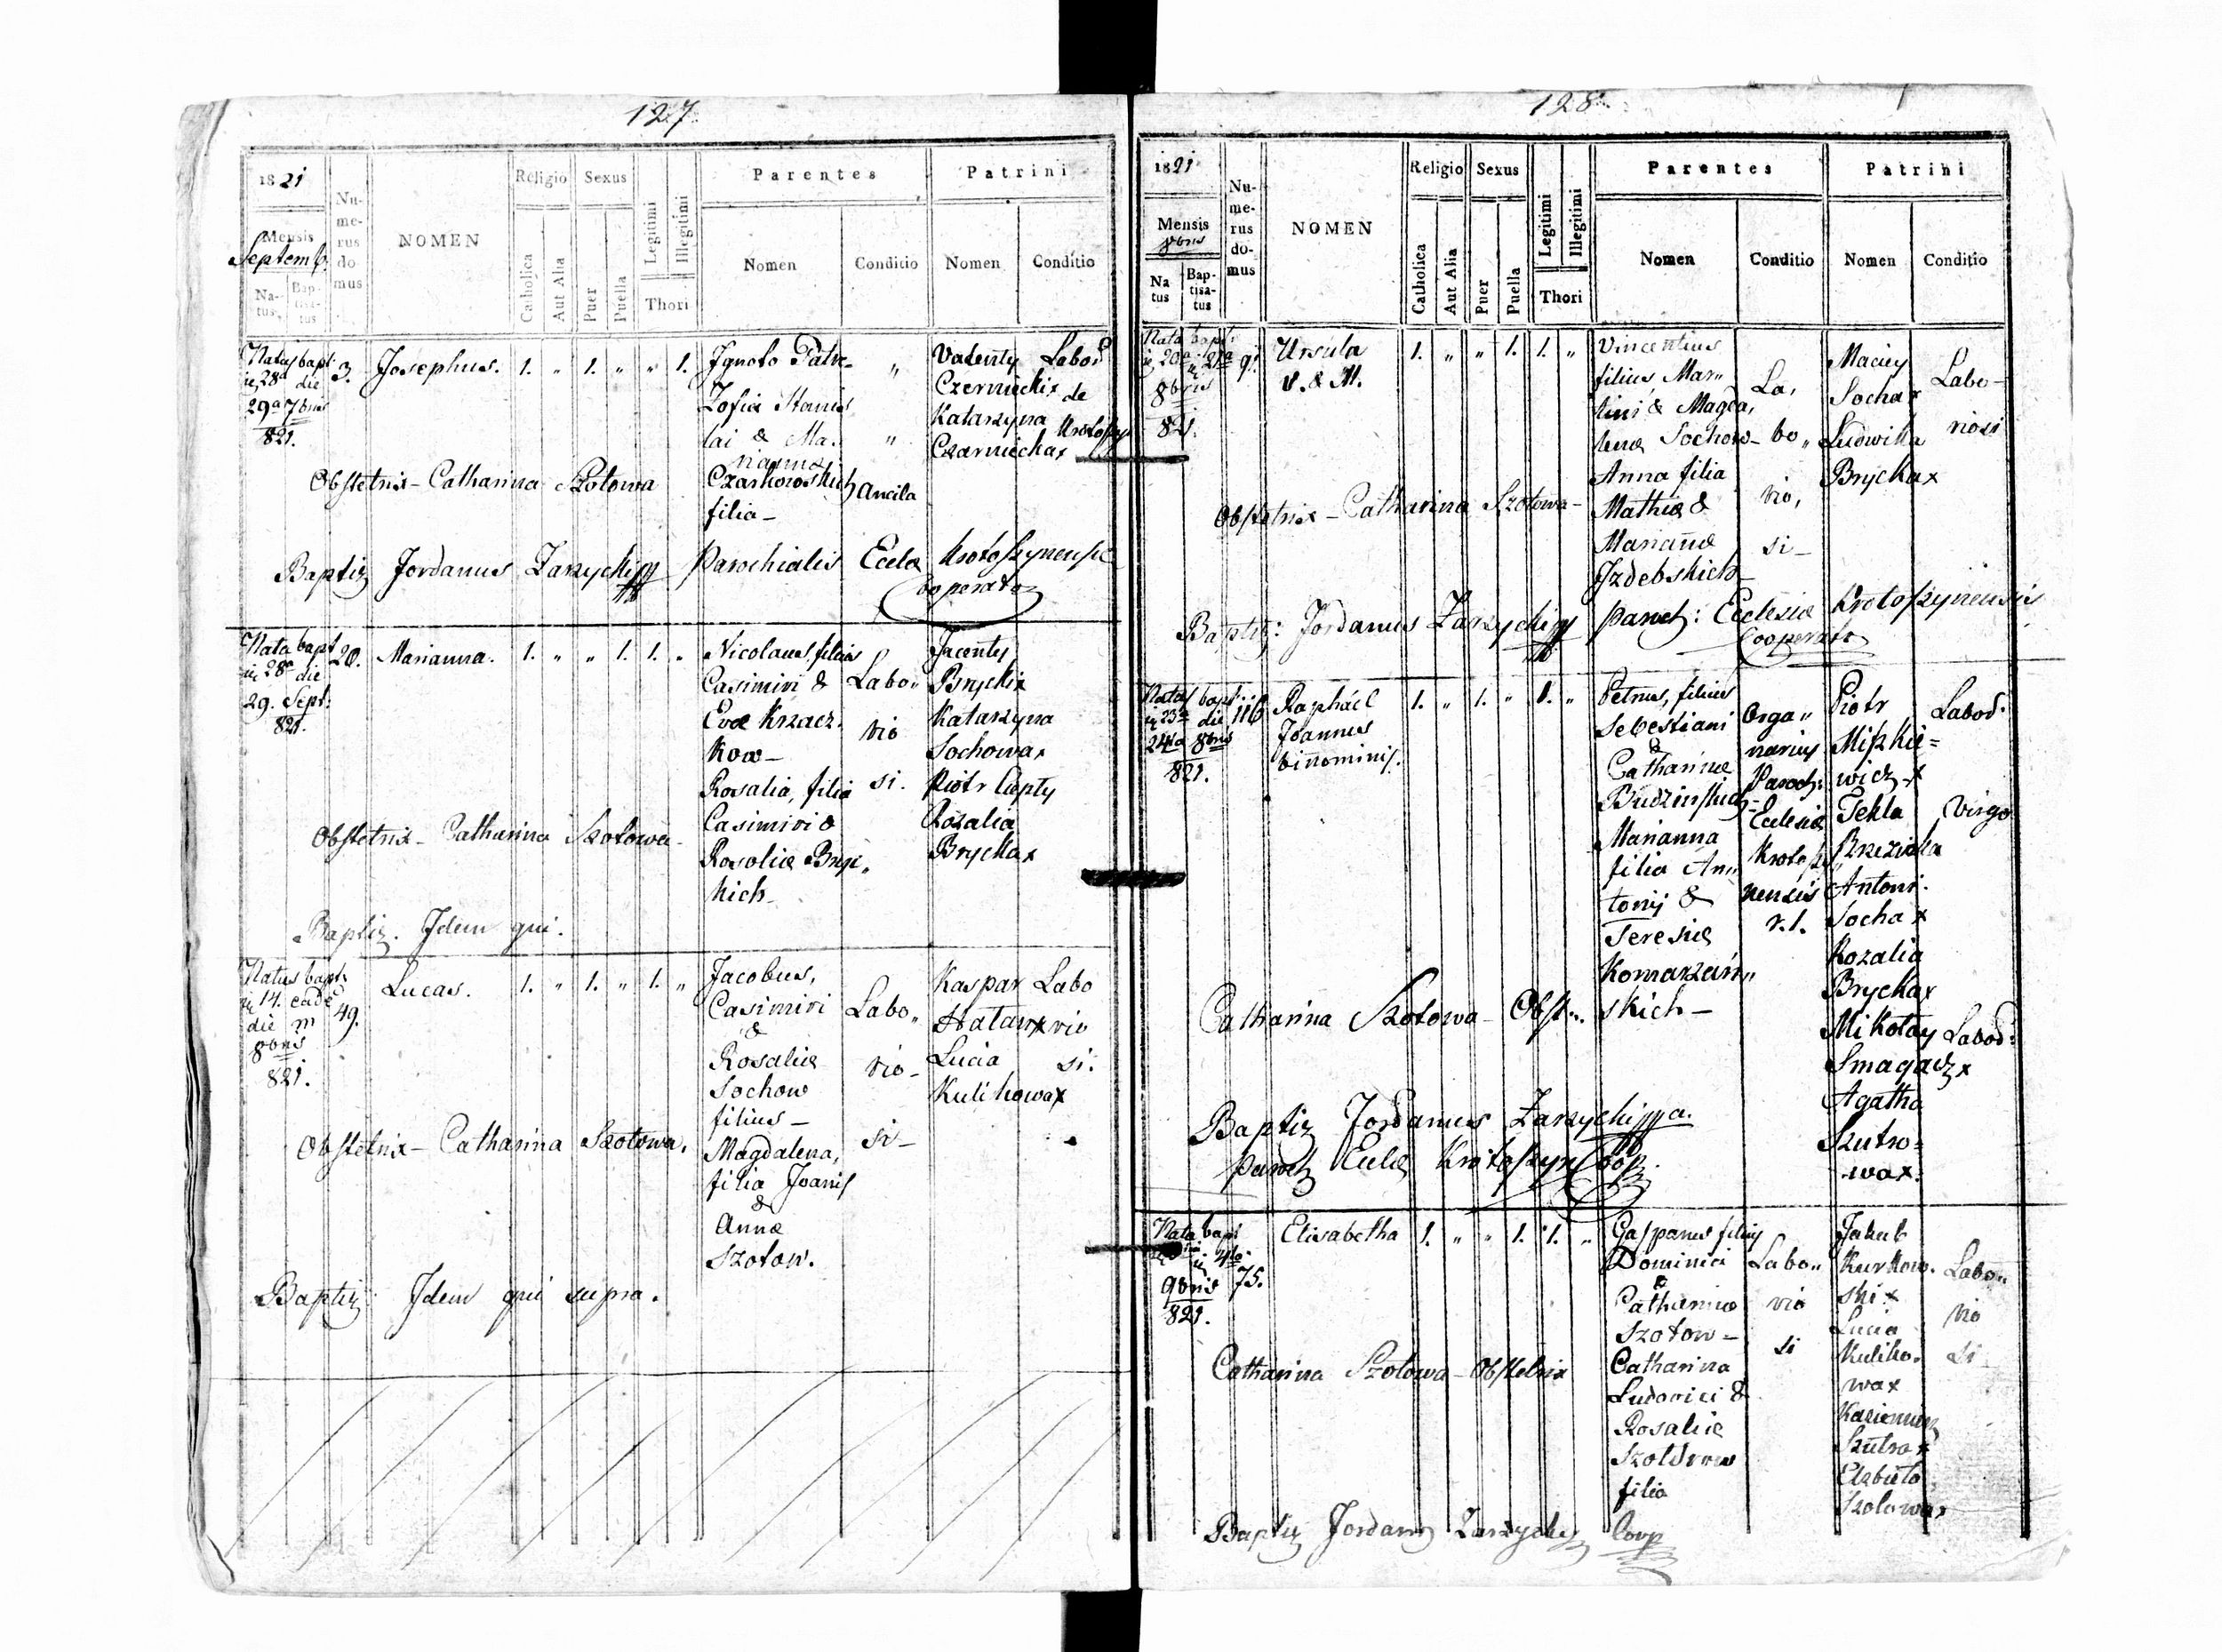 127
1821
Mensis
Septemb.
Na-
tus
Bap-
tisa-
tus
Nu-
me-
rus
do-
mus
NOMEN
Religio
Catholica
Aut Alia
Sexus
Puer
Puella
Legitimi
Illegitimi
Thori
Parentes
Nomen
Conditio
Patrini
Nomen
Conditio
Natus bapt:
28a die
29a 7bris
821.
3.
Josephus.
1. " 1. " " 1.
Ignoto Patre
Zofia Stanis
lai & Ma.
rianna
Czarkowskich
filia-
"
"
Ancila
Valenty
Czerniecki x
Katarzyna
Czarniecka x
Labod
de
Krotoszyn
Obstetrix - Catharina Szotowa
Baptiz Jordanus Zarzycki Parochialis Eccla Krotoszynensis
Cooperator
Nata bapt
28a die
29. Sept:
821.
20.
Marianna.
1. " " 1. 1. "
Nicolaus filius
Casimiri &
Eva Krzacz.
kow-
Rosalia, filia
Casimiri &
Rosalia Bryc"
kich-
Labo"
rio
si.
Jacenty
Brycki x
Katarzyna
Sochowa x
Piotr Ciepty
Rozalia
Brycka x
Obstetrix - Catharina Szotowa-
Baptiz. Idem qui.
Natus bapt:
14. eade
die m
8bris
821.
49.
Lucas.
1. " 1. " 1. "
Jacobus,
Casimiri
&
Rosalia
Sochow
filius-
Magdalena,
filia Joanis
&
Anna
Szotow.
Labo"
rio-
si-
Kaspar
Hatan x
Lucia
Kulikowa x
Labo
rio
si.
Obstetrix - Catharina Szotowa.
Baptiz: Idem qui supra.
128
1821
Mensis
8bris
Na
tus
Bap-
tisa-
tus
Nu-
me-
rus
do-
mus
NOMEN
Religio
Catholica
Aut Alia
Sexus
Puer
Puella
Legitimi
Illegitimi
Thori
Parentes
Nomen
Conditio
Patrini
Nomen
Conditio
Nata bapt:
20a 21a
8bris
821.
9.
Ursula
V. & M.
1. " " 1. 1. "
Vincentius
filius, Mar"
tini & Magda,
lena Sochow-
Anna filia
Mathia &
Marianna
Izdebskich-
La,
bo"
rio,
si-
Maciey
Socha x
Ludwika
Brycka x
Labo-
riosi
Obstetrix - Catharina Szotowa-
Baptiz: Jordanus Zarzycki Paroch: Ecclesia Krotoszynensis
Cooperator
Natus bapt:
23a die
24ta 8bris
821.
116
Raphael
Joannes
binominis.
1. " 1. " 1. "
Petrus, filius
Sebestiani
&
Catharina
Budzinskich-
Marianna
filia An"
tonij &
Teresia
Komarzań"
skich-
Orga"
narius
Paroch:
Ecclesia
Krotoszy
nensis
r.l.
Piotr
Miszkie=
wicz x
Tekla
Brzezicka
Antoni
Socha x
Rozalia
Brycka x
Mikołay
Smagacz x
Agatha
Szutro-
wa x.
Labod:
Virgo
Labod:
Catharina Szotowa - Obst...
Baptiz Jordanus Zarzycki
Paroch Eccla Krotoszyn Coop.
Nata bapt
4ta
9bris
821.
75.
Elisabetha
1. " " 1. 1. "
Gasparus filius
Dominici
&
Catharina
Szotow-
Catharina
Ludovici &
Rosalia
filia
Labo"
rio
si
Jakub
Kurkow.
ski x
Lucia
Kuliko.
wa x
Kazimierz
Szutra x
Elzbieta
Szotowa x
Labo"
rio
si
Catharina Szotowa - Obstetrix
Baptiz Jordan Zarzycki Coop